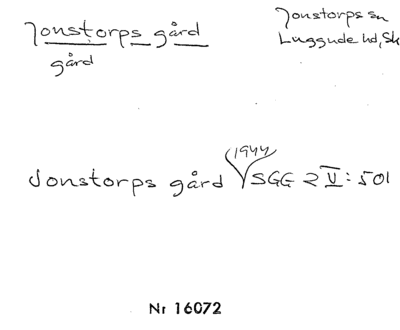 Jonstorps gård
gård
Jonstorps sn
Luggude hd, Sk
1944
Jonstorps gård SGG 2 V: 501
Nr 16072